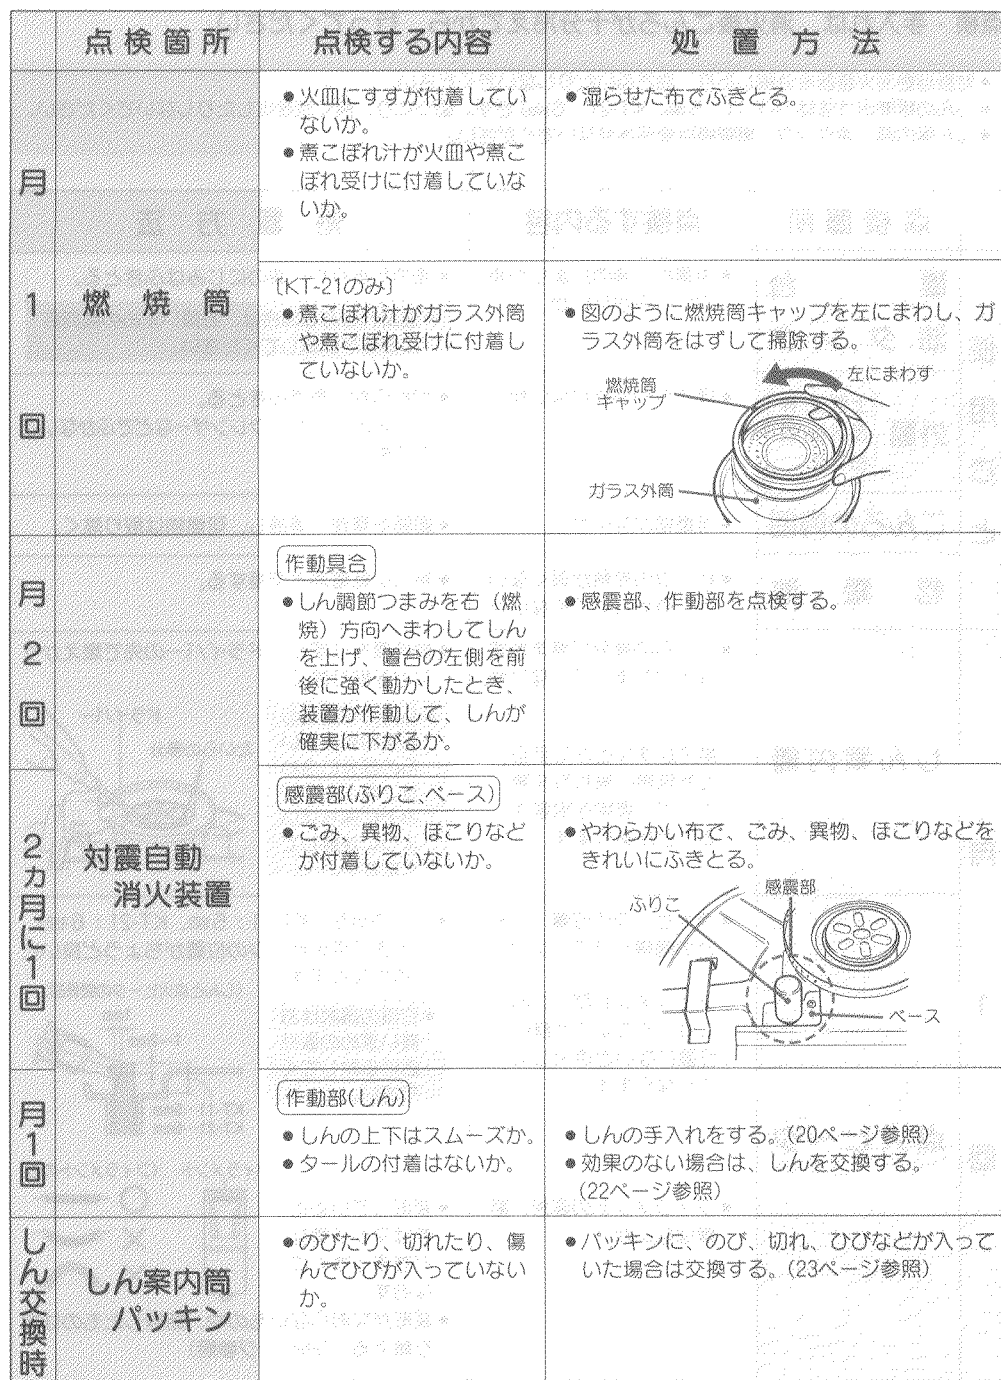 点検箇所
点検する内容
処置方法
月
1
回
燃焼筒
●火皿にすすが付着してい
ないか。
●煮こぼれ汁が火皿や煮こ
ぼれ受けに付着していな
いか。
●湿らせた布でふきとる。
〔KT-21のみ〕
●煮こぼれ汁がガラス外筒
や煮こぼれ受けに付着し
ていないか。
●図のように燃焼筒キャップを左にまわし、ガ
ラス外筒をはずして掃除する。
左にまわす
燃焼筒
キャップ
ガラス外筒
月
2
回
対震自動
消火装置
作動具合
●しん調節つまみを右（燃
焼）方向へまわしてしん
を上げ、置台の左側を前
後に強く動かしたとき、
装置が作動して、しんが
確実に下がるか。
●感震部、作動部を点検する。
2ヵ月に1回
感震部(ふりこ、ベース)
●ごみ、異物、ほこりなど
が付着していないか。
●やわらかい布で、ごみ、異物、ほこりなどを
きれいにふきとる。
感震部
ふりこ
ベース
月1回
作動部(しん)
●しんの上下はスムーズか。
●タールの付着はないか。
●しんの手入れをする。(20ページ参照)
●効果のない場合は、しんを交換する。
(22ページ参照)
しん交換時
しん案内筒
パッキン
●のびたり、切れたり、傷
んでひびが入っていない
か。
●パッキンに、のび、切れ、ひびなどが入って
いた場合は交換する。(23ページ参照)